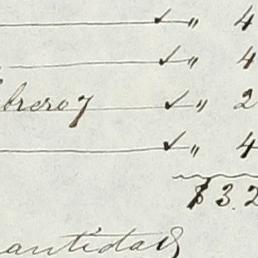 ✓ " 4
✓ " 4
brero 7 ✓ " 2
✓ " 4
$ 3.2
antidad